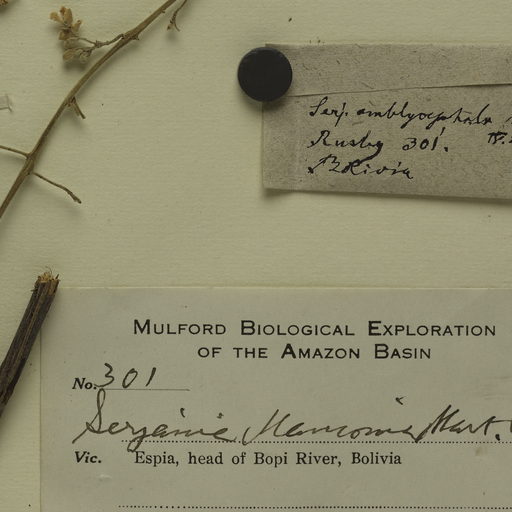 Serj. amblyocephala
Rusby 301.
Bolivia
MULFORD BIOLOGICAL EXPLORATION
OF THE AMAZON BASIN
No. 301
Serjania Mart.
Vic. Espia, head of Bopi River, Bolivia